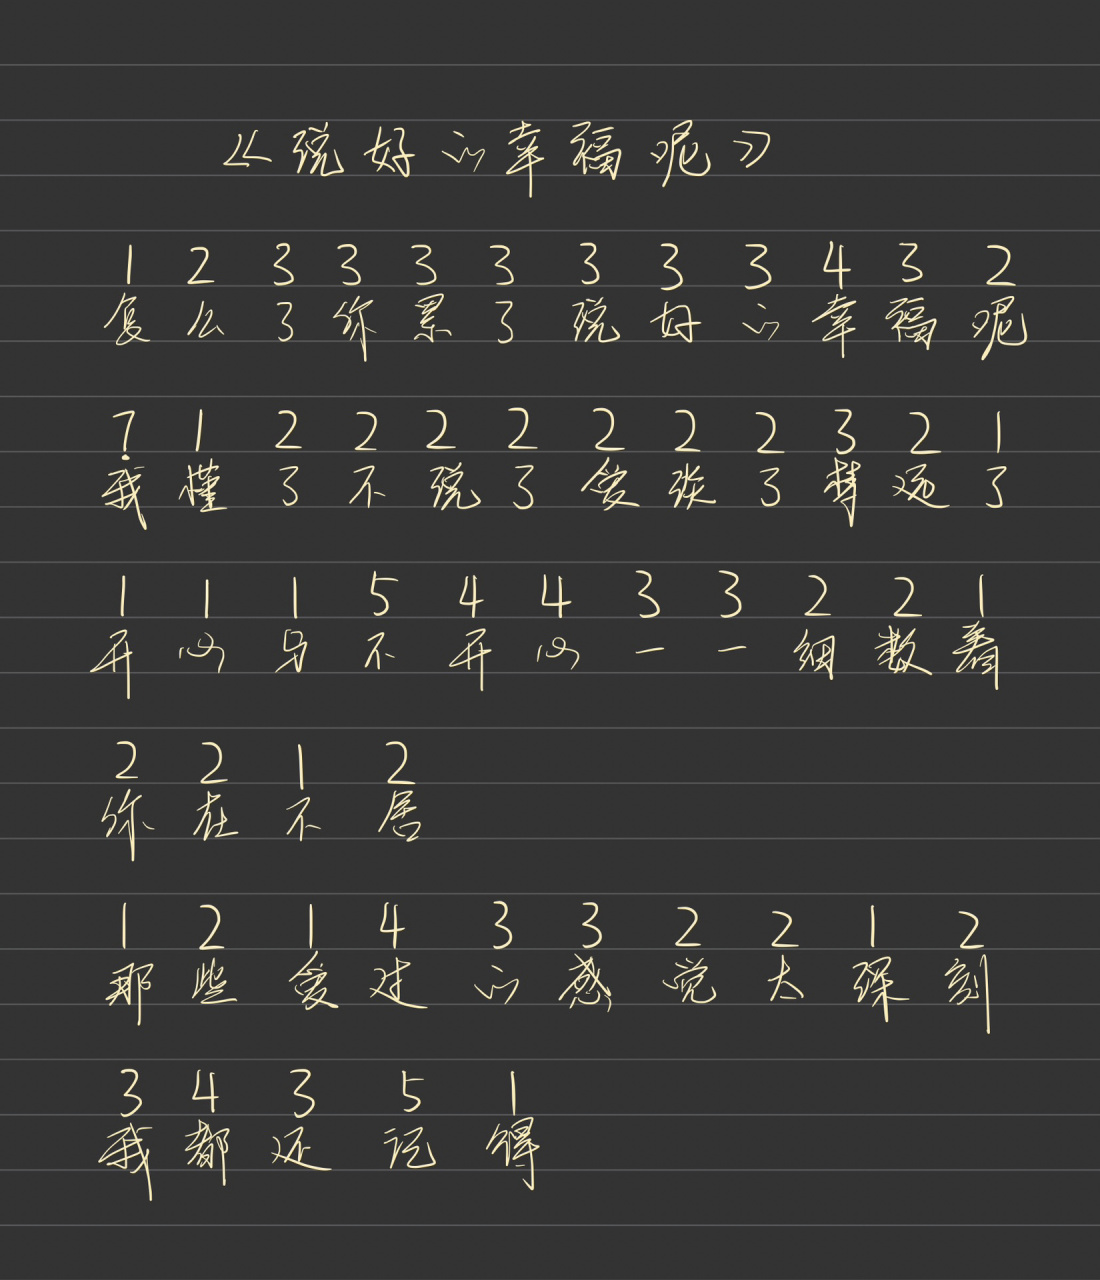 《说好的幸福呢》
1 2 3 3 3 3 3 3 3 4 3 2
怎么了你累了说好的幸福呢
7̣ 1 2 2 2 2 2 2 2 3 2 1
我懂了不说了爱淡了梦远了
1 1 1 5 4 4 3 3 2 2 1
开心与不开心一一细数着
2 2 1 2
你在不舍
1 2 1 4 3 3 2 2 1 2
那些爱过的感觉太深刻
3 4 3 5 1
我都还记得